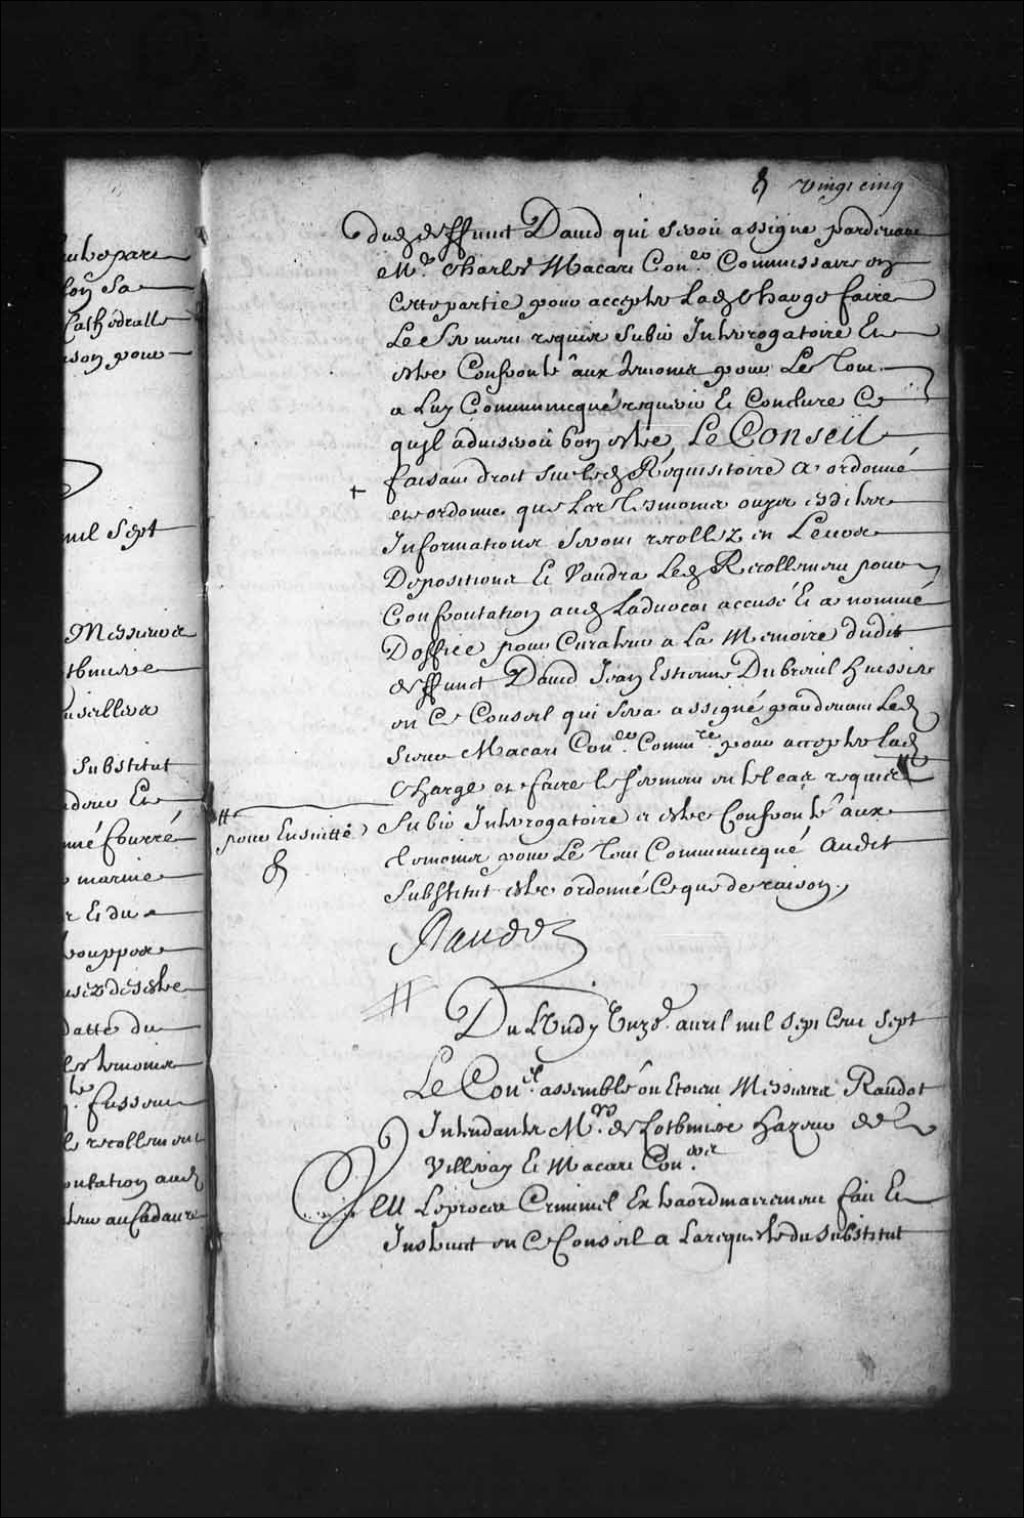 vingt cinq
dud deffunct David qui seroit assigné pardevant
Me. Charles Macart Coner. Commissaire en
Cette partie pour accepter Lad Charge faire
Le Serment requis Subir Interrogatoire Et
estre Confronté aux temoins pour Le Tout
a Luy Communicqué requerir Et Conclure Ce
quil aduiseroit bon estre, Le Conseil
faisant droit Sur led Réquisitoire a ordonné
+ et ordonne que Les Tesmoins ouys esdites
Informations Seront recollez en Leurs
Depositions Et Vaudra Led Recollement pour
Confrontation aud Laduocat accusé Et a nommé
Doffice pour Curateur a La Memoire dudit
deffunct David Jean Estienne Dubreuil Huissier
en Ce Conseil qui Sera assigné pardevant Led
Sieur Macart Coner. Commre. pour accepter lad
Charge et faire le Serment en tel cas requis #
# pour Ensuitte
Subir Interrogatoire et estre Confronté aux
temoins pour Le Tout Communicqué Audit
Substitut estre ordonné Ce que de raison,
Raudot
#
Du Lundy Unze. auril mil Sept Cent Sept
Le Conel. assemblé ou Etoient Messieurs Raudot
Intendants Mrs. de Lotbiniere Hazeur de
Villeray Et Macart Coners.
Veu Leproces Criminel Extraordinairement fait Et
Instruit en Ce Conseil a Larequeste du Substitut
Cathedralle
mil Sept
Messieurs
Substitut
marine
r Et du
datté du
les temoins
fussent
le recollement